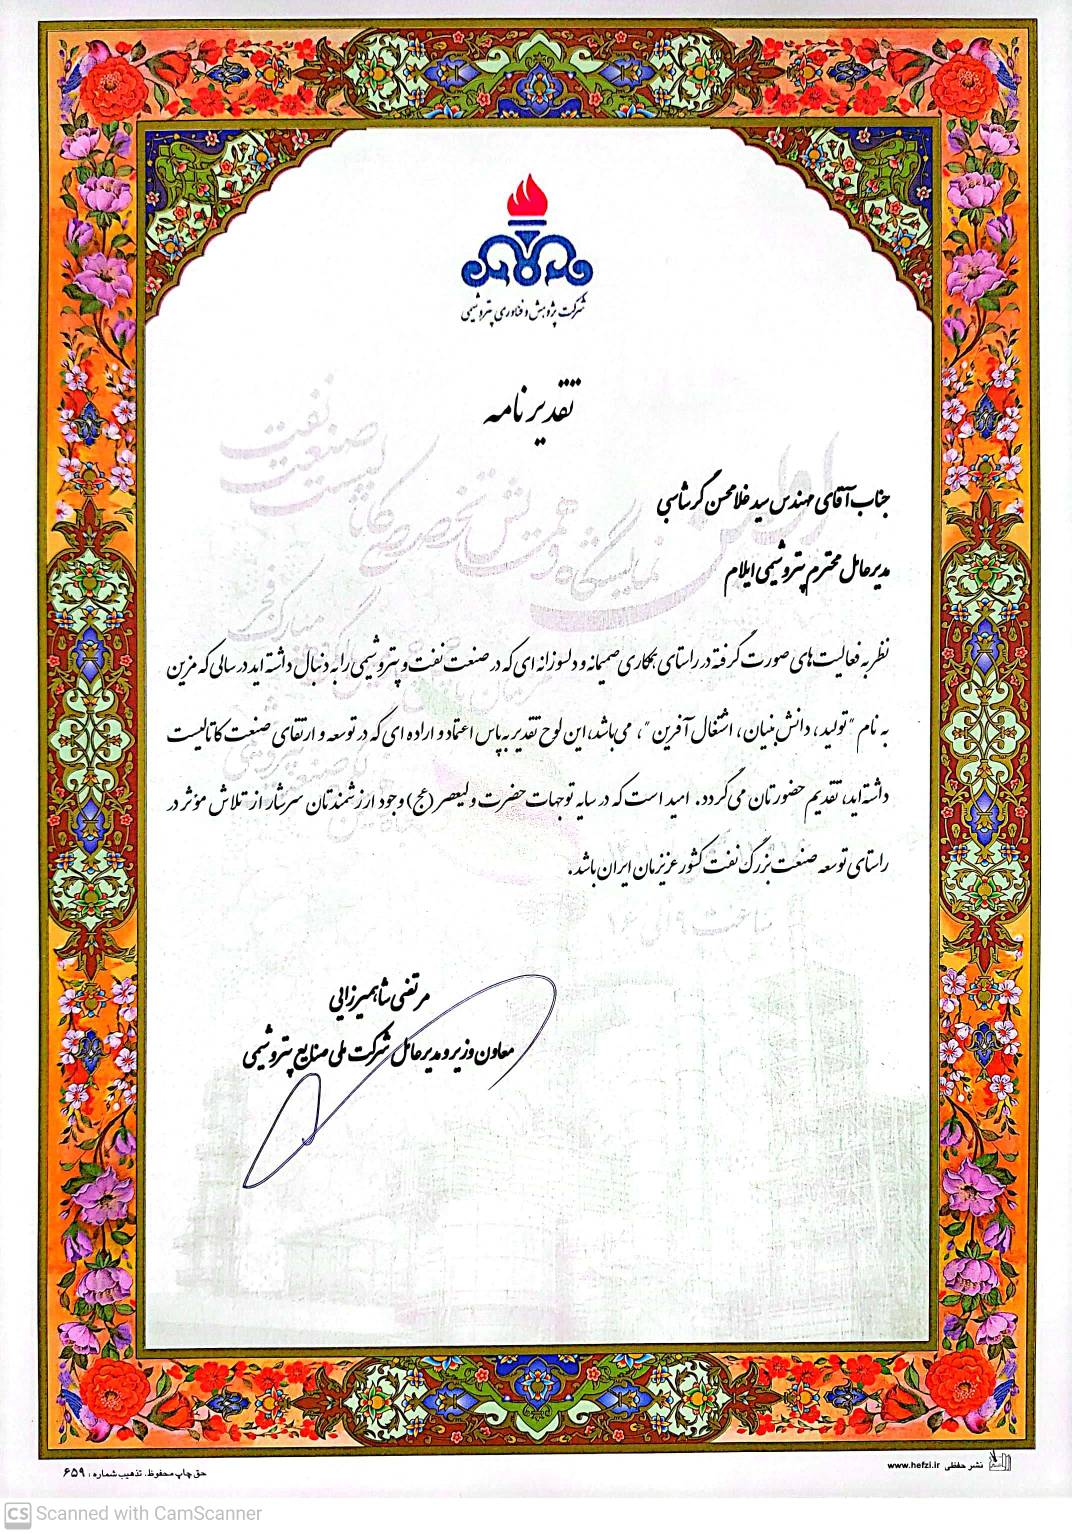 شرکت پژوهش و فناوری پتروشیمی
تقدیرنامه
جناب آقای مهندس سید غلامحسن گرشاسبی
مدیرعامل محترم پتروشیمی ایلام
نظر به فعالیت‌های صورت گرفته در راستای همکاری صمیمانه و دلسوزانه ای که در صنعت نفت و پتروشیمی را به دنبال داشته اید در سالی که مزین
به نام "تولید، دانش بنیان، اشتغال آفرین"، می‌باشد، این لوح تقدیر به پاس اعتماد و اراده ای که در توسعه و ارتقای صنعت کاتالیست
داشته اید، تقدیم حضورتان می گردد. امید است که در سایه توجهات حضرت ولیعصر (عج) وجود ارزشمندتان سرشار از تلاش مؤثر در
راستای توسعه صنعت بزرگ نفت کشور عزیزمان ایران باشد.
مرتضی شاهمیرزایی
معاون وزیر و مدیرعامل شرکت ملی صنایع پتروشیمی
نشر حفظی www.hefzi.ir
حق چاپ محفوظ. تذهیب شماره: ۶۵۹
CS Scanned with CamScanner